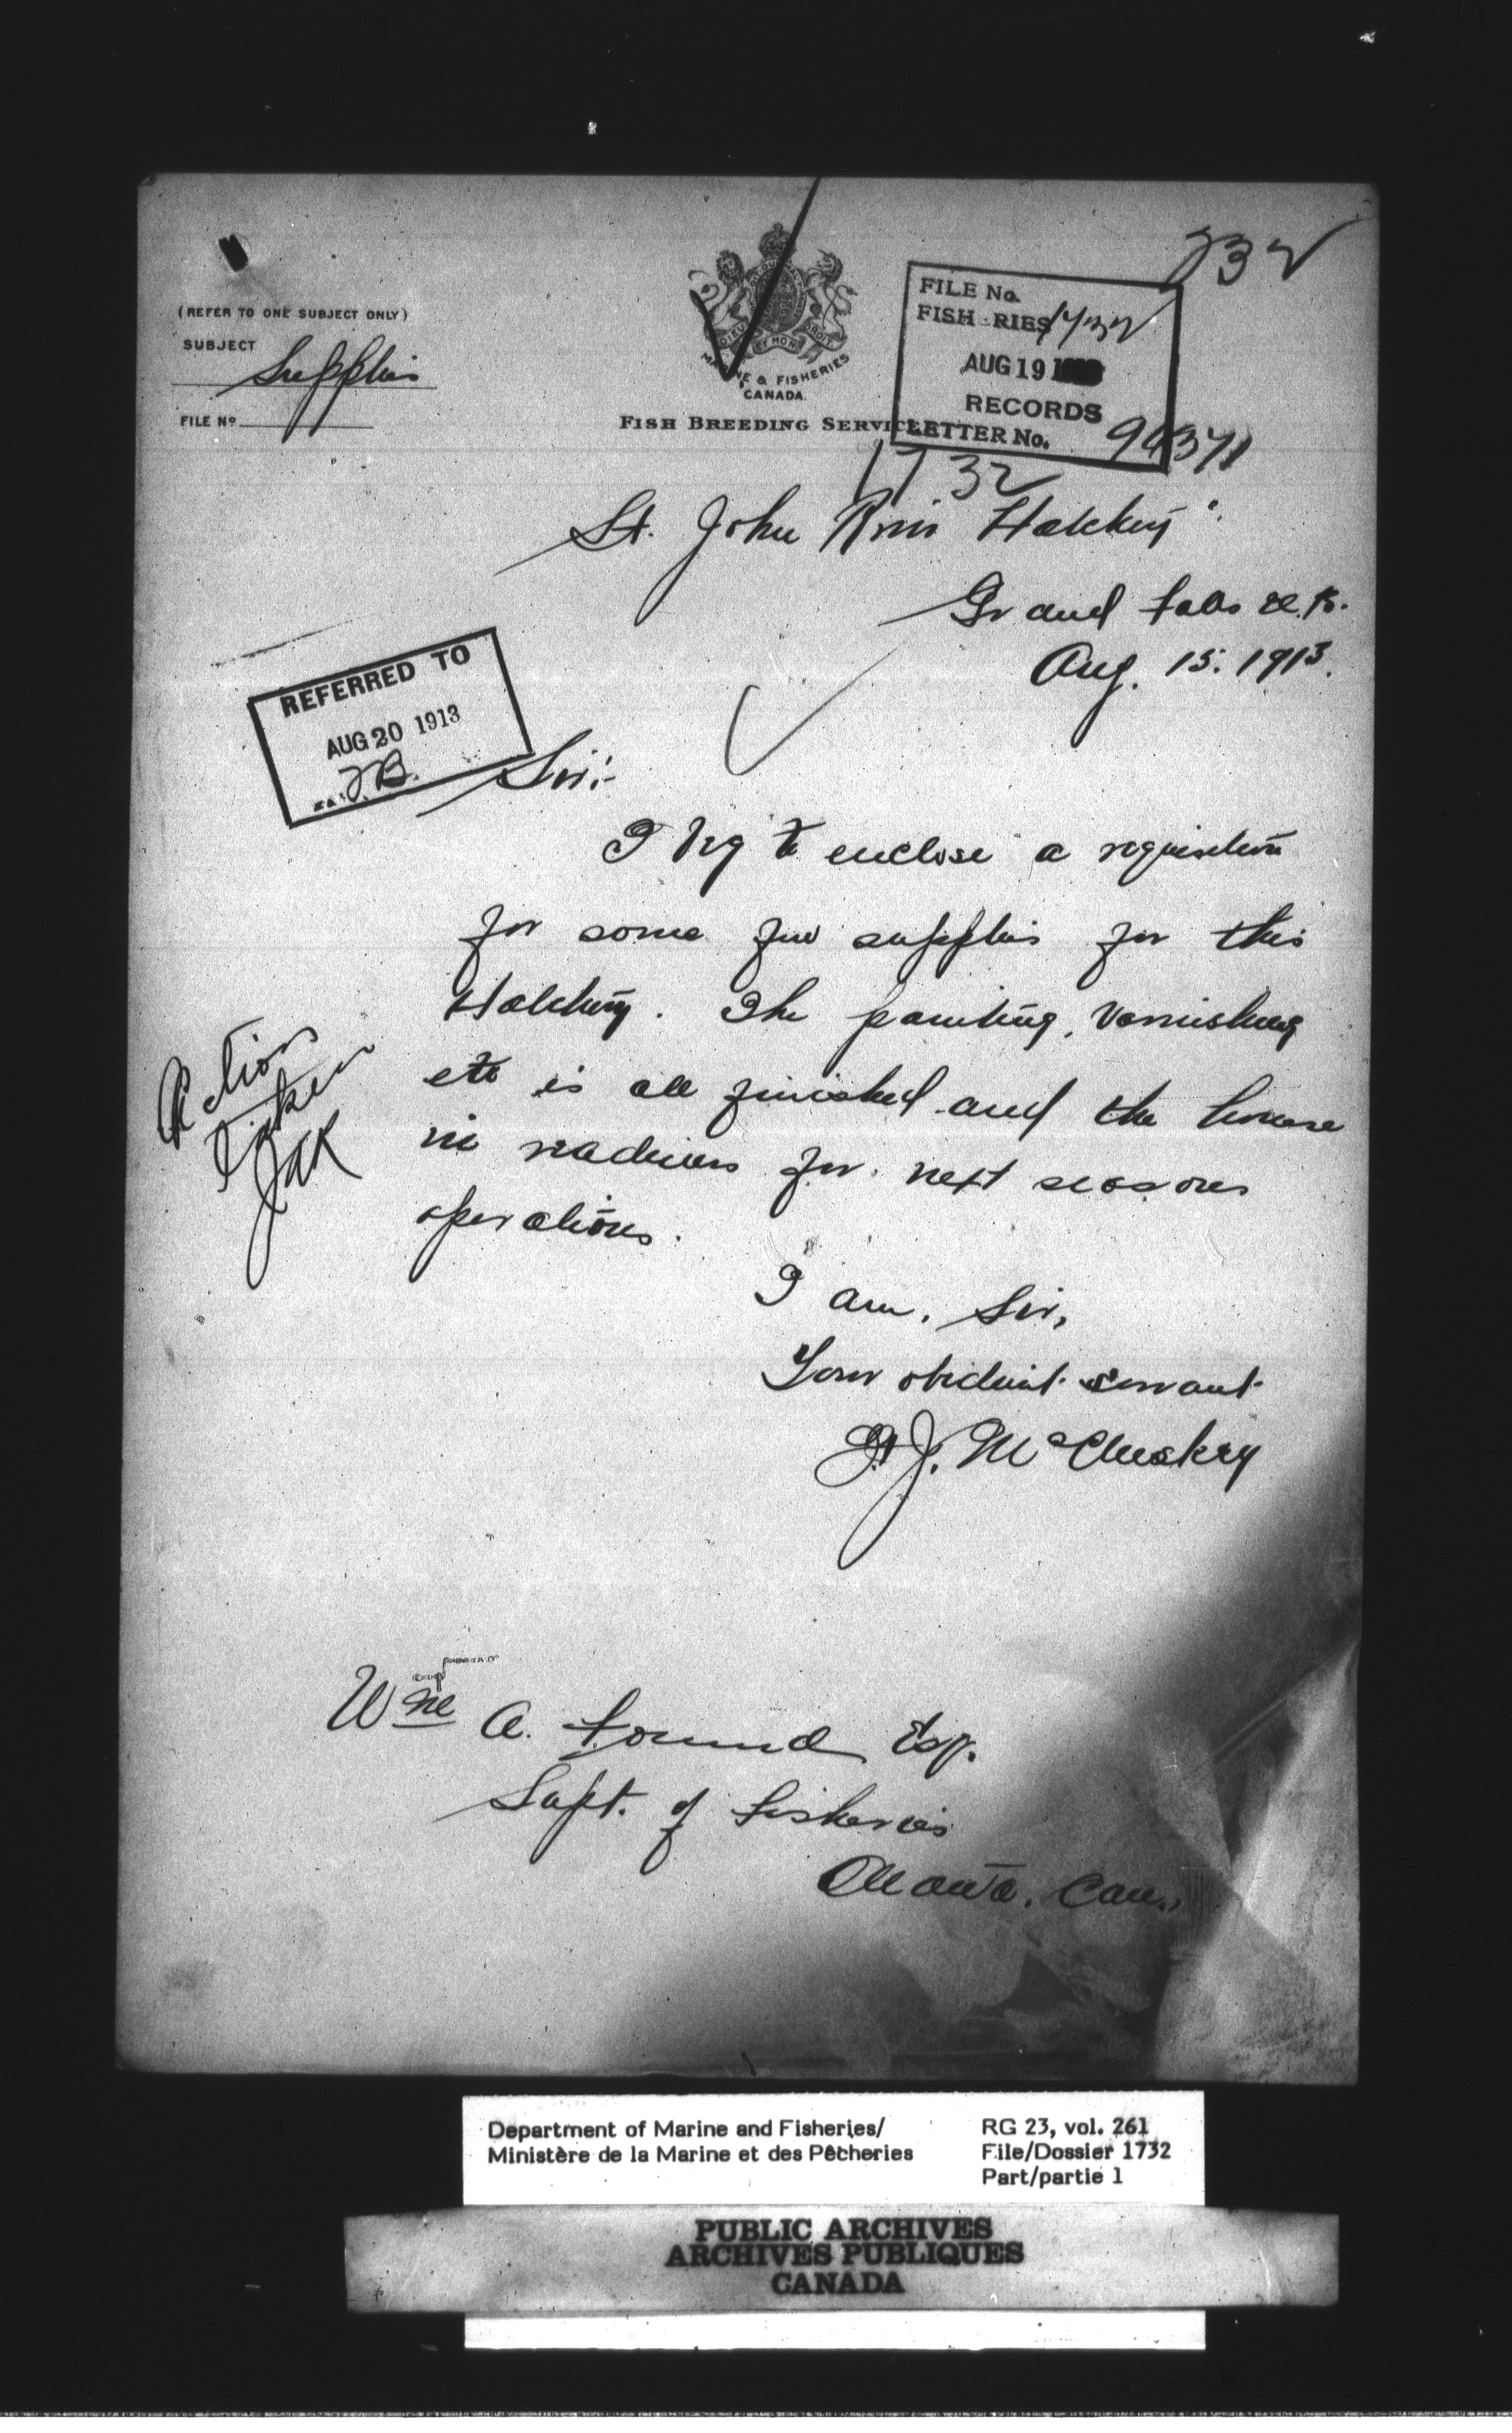 732
(REFER TO ONE SUBJECT ONLY)
SUBJECT Supplies
FILE No
DIEU ET MON DROIT
MARINE & FISHERIES
CANADA.
FISH BREEDING SERVICE
FILE No.
FISHERIES 1732
AUG 19
RECORDS
LETTER No.
1732
St. John River Hatchery
Grand Falls N.B.
Aug. 15. 1913.
REFERRED TO
AUG 20 1913
Sir:-
I beg to enclose a requisition
for some few supplies for this
Hatchery. The painting, varnishing
etc is all finished and the house
in readiness for next seasons
operations.
Action
taken
JAK
I am, Sir,
Your obedient servant
J. McCluskey
Wm A. Found Esq.
Supt. of Fisheries
Ottawa. Can.,
Department of Marine and Fisheries/
Ministère de la Marine et des Pêcheries
RG 23, vol. 261
File/Dossier 1732
Part/partie 1
PUBLIC ARCHIVES
ARCHIVES PUBLIQUES
CANADA